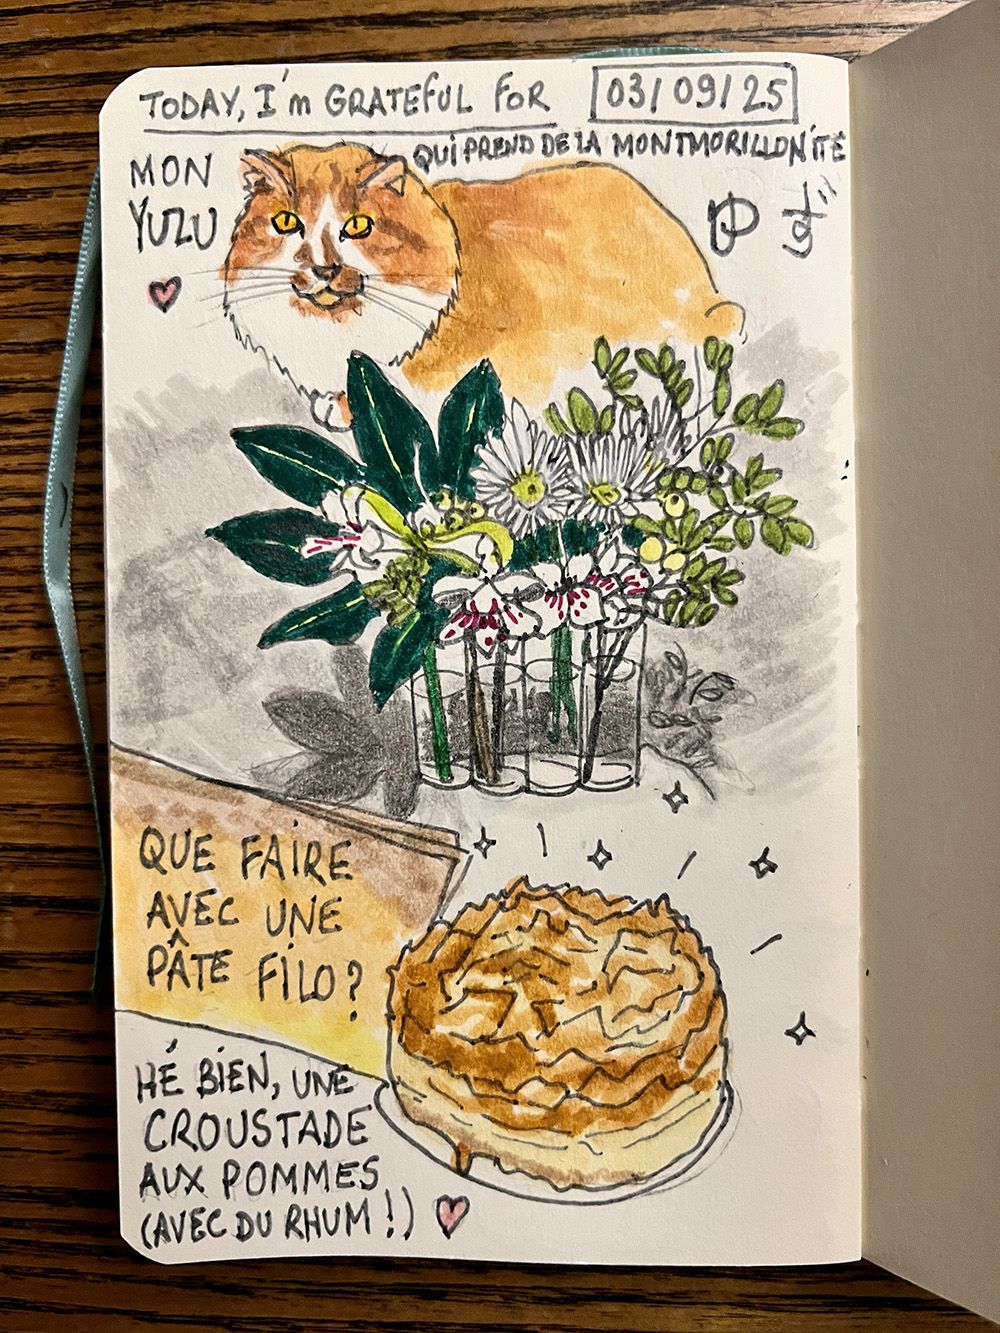 TODAY, I'm GRATEFUL FOR
03/09/25
MON
YUZU
QUI PREND DE LA MONTMORILLONITE
QUE FAIRE
AVEC UNE
PÂTE FILO?
HÉ BIEN, UNE
CROUSTADE
AUX POMMES
(AVEC DU RHUM !)